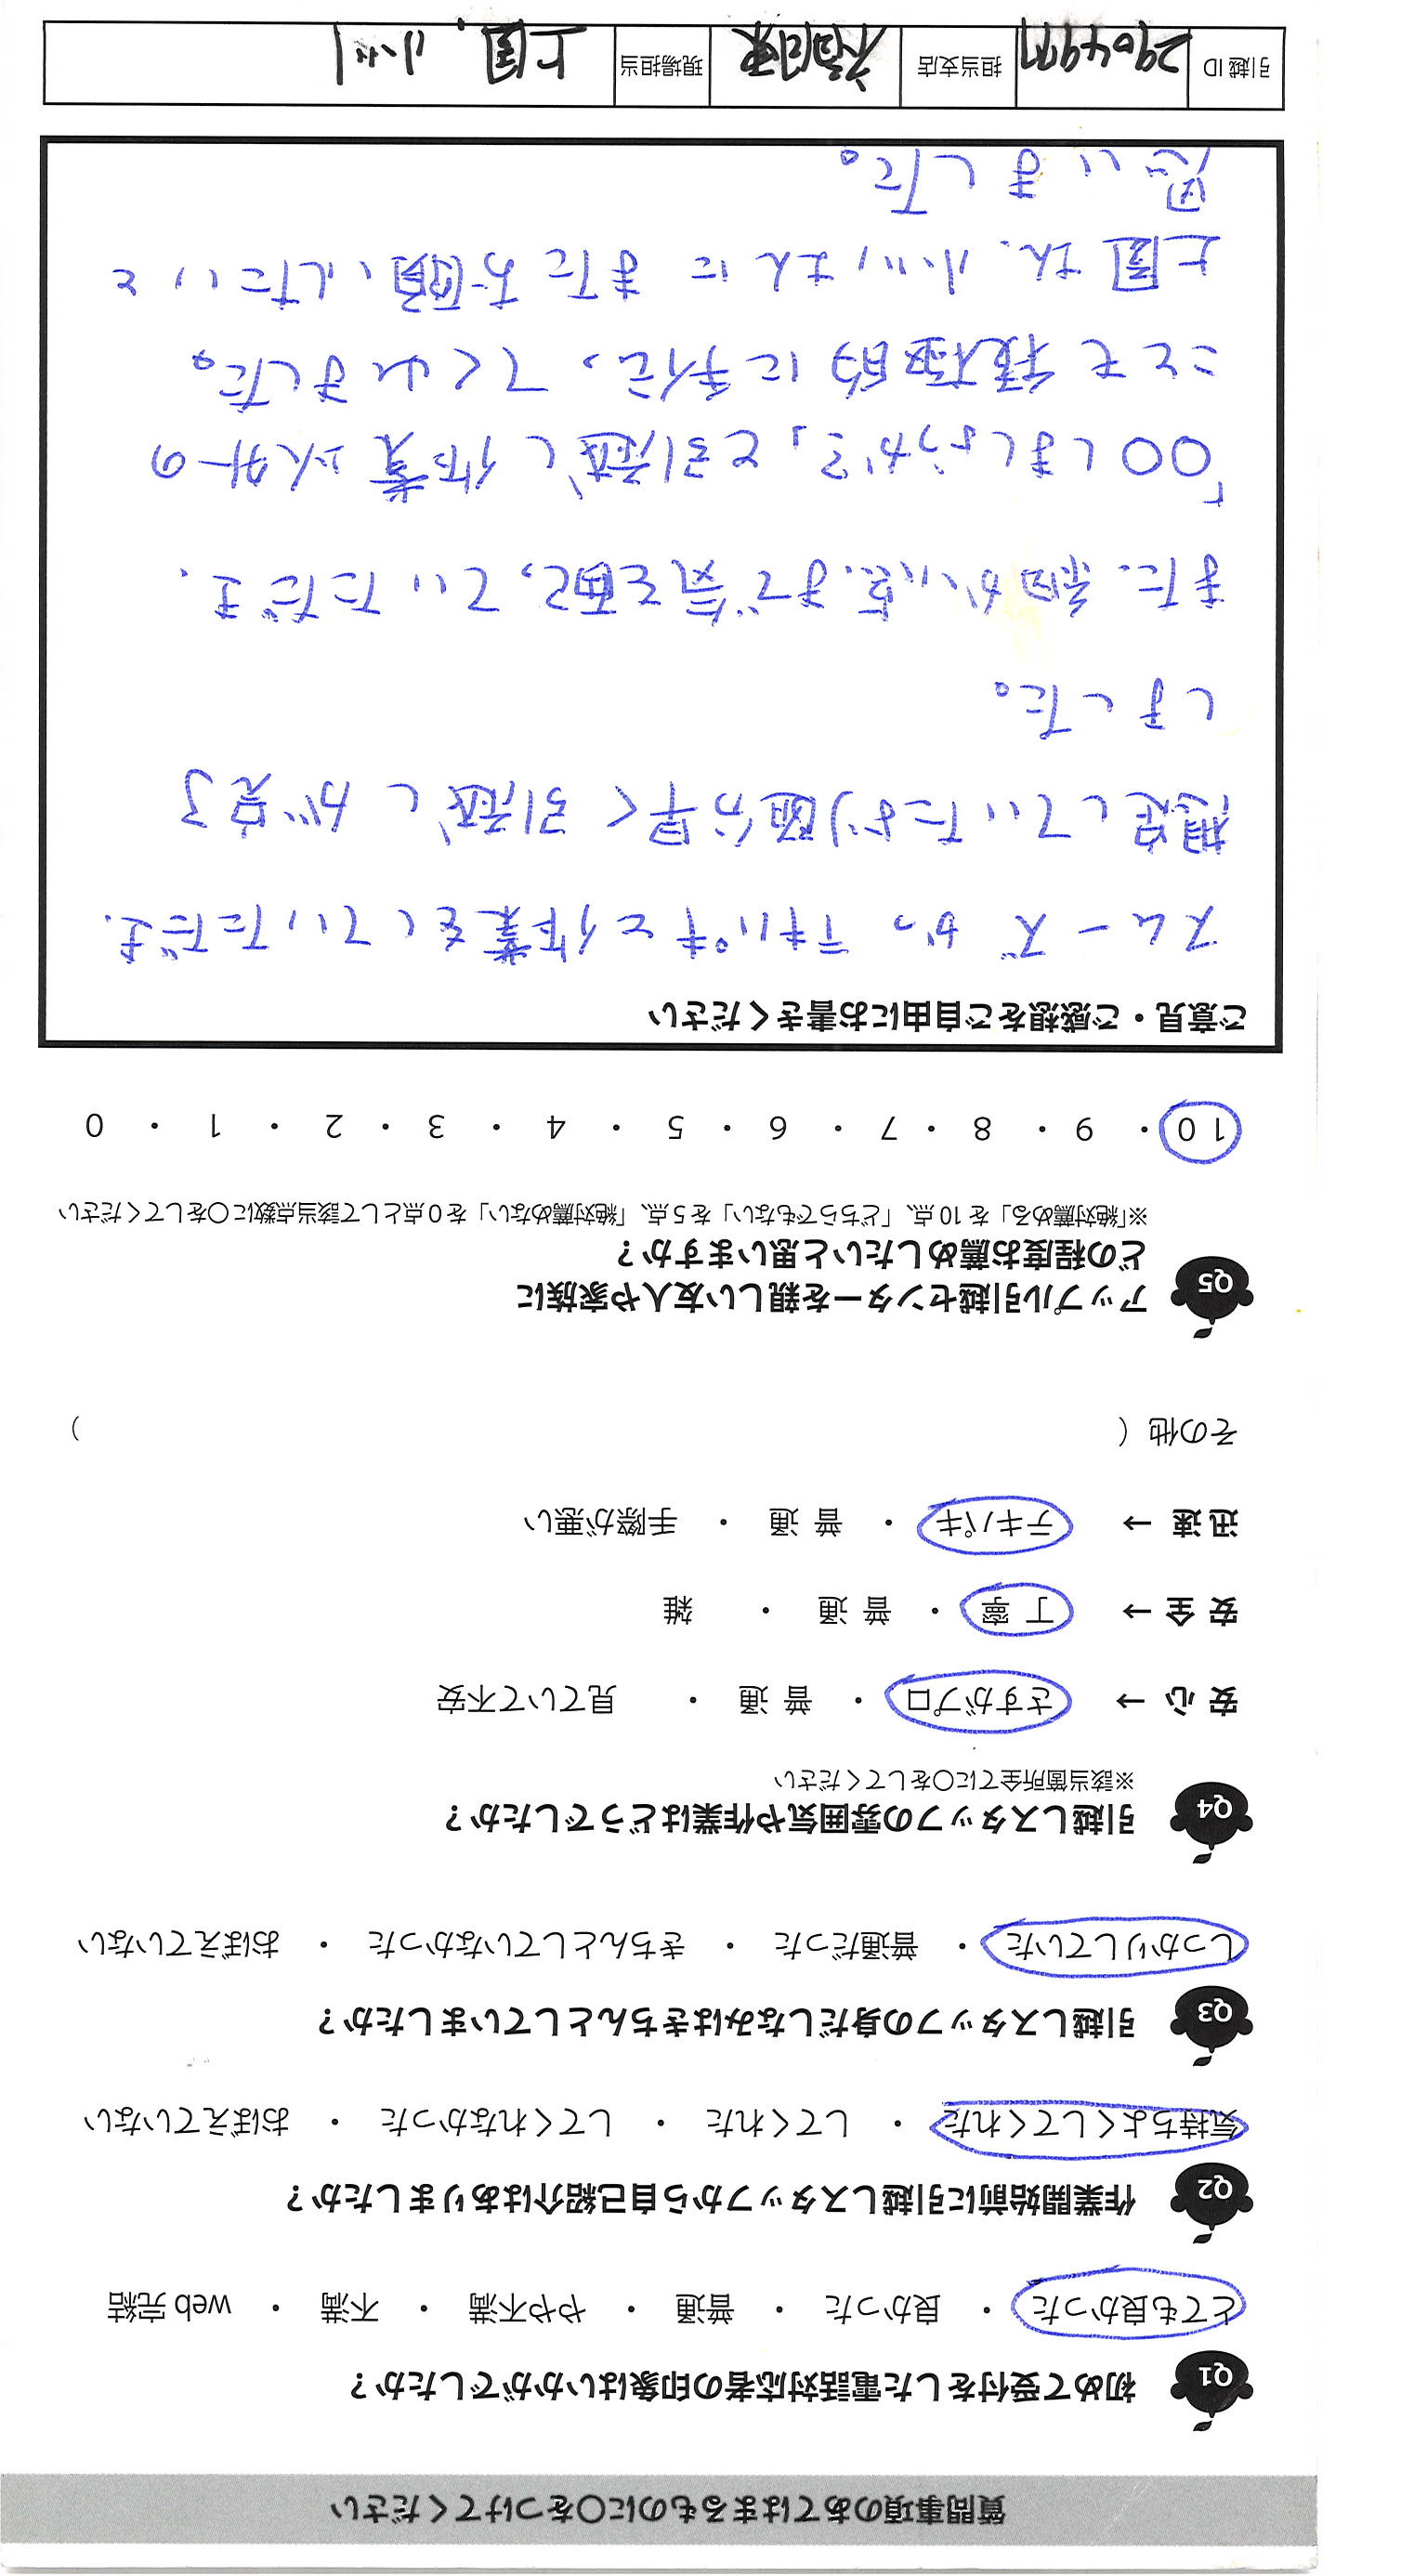 質問事項のあてはまるものに○をつけてください
Q1 初めて受付をした電話対応者の印象はいかがでしたか？
とても良かった ・ 良かった ・ 普通 ・ やや不満 ・ 不満 ・ web 完結
Q2 作業開始前に引越しスタッフから自己紹介はありましたか？
気持ちよくしてくれた ・ してくれた ・ してくれなかった ・ おぼえていない
Q3 引越しスタッフの身だしなみはきちんとしていましたか？
しっかりしていた ・ 普通だった ・ きちんとしていなかった ・ おぼえていない
Q4 引越しスタッフの雰囲気や作業はどうでしたか？
※該当箇所全てに○をしてください
安 心 → さすがプロ ・ 普 通 ・ 見ていて不安
安 全 → 丁 寧 ・ 普 通 ・ 雑
迅 速 → テキパキ ・ 普 通 ・ 手際が悪い
その他（ ）
Q5 アップル引越センターを親しい友人や家族に
どの程度お薦めしたいと思いますか？
※「絶対薦める」を 10 点、「どちらでもない」を 5 点、「絶対薦めない」を 0 点として該当点数に○をしてください
10 ・ 9 ・ 8 ・ 7 ・ 6 ・ 5 ・ 4 ・ 3 ・ 2 ・ 1 ・ 0
ご意見・ご感想をご自由にお書きください
スムーズ かつ テキパキと作業をしていただき、
想定していたより随分早く引越しが完了
しました。
また、細かい点まで気を配っていただき、
「○○しましょうか？」と引越し作業以外の
ことも積極的に手伝ってくれました。
上園さん、小川さんにまたお願いしたいと
思いました。
引越 ID 2904977 担当支店 現場担当 上園、小川